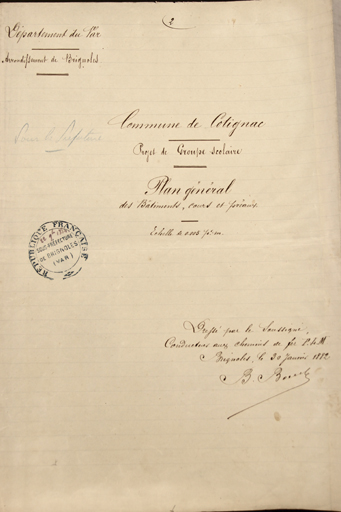 2
Département du Var
Arrondissement de Brignoles
Commune de Cotignac
Projet de Groupe scolaire
Plan général
des Bâtiments, cours et préaux.
Echelle de 0.005 p. m.
RÉPUBLIQUE FRANÇAISE
SOUS-PRÉFECTURE
DE BRIGNOLES
(VAR)
Dressé par le Soussigné,
Conducteur aux chemins de fer P.L.M
Brignoles, le 30 Janvier 1882